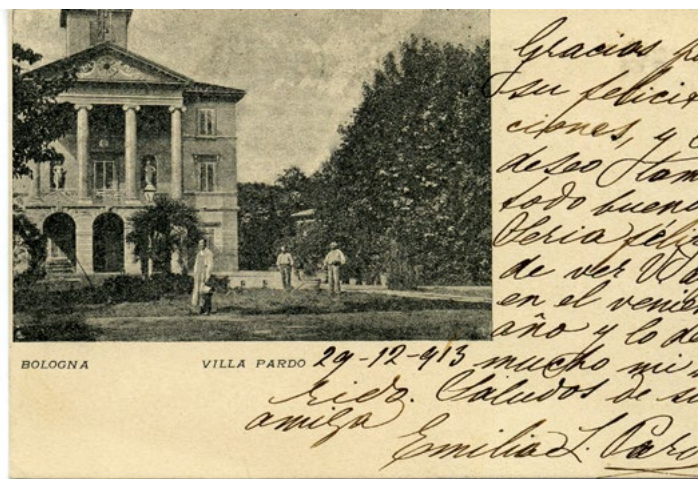 Gracias
su felici
ciones, y
deseo tam
todo buen
Seria feliz
de ver
en el veni
año y lo de
BOLOGNA VILLA PARDO 29-12-913 mucho mi
rido. Saludos de su
amiga
Emilia L. Pardo